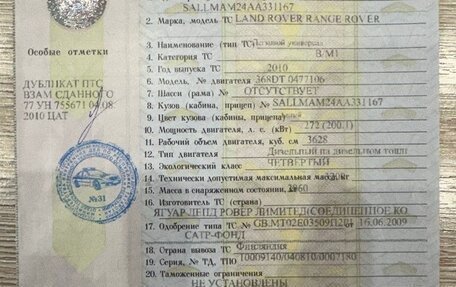 SALLMAM24AA331167
2. Марка, модель ТС LAND ROVER RANGE ROVER
3. Наименование (тип ТС) Легковой универсал
4. Категория ТС B/M1
5. Год выпуска ТС 2010
6. Модель, № двигателя 368DT 0477106
7. Шасси (рама) № ОТСУТСТВУЕТ
8. Кузов (кабина, прицеп) № SALLMAM24AA331167
9. Цвет кузова (кабины, прицепа)
10. Мощность двигателя, л. с. (кВт) 272 (200.1)
11. Рабочий объем двигателя, куб. см 3628
12. Тип двигателя Дизельный на дизельном топл
13. Экологический класс ЧЕТВЕРТЫЙ
14. Технически допустимая максимальная масса
15. Масса в снаряженном состоянии,
16. Изготовитель ТС (страна)
ЯГУАР ЛЕНД РОВЕР ЛИМИТЕД(СОЕДИНЕННОЕ КО
17. Одобрение типа ТС № 16.06.2009
САТР-ФОНД
18. Страна вывоза ТС Финляндия
19. Серия, № ТД, ТПО 10009140/040810/0007180
20. Таможенные ограничения
НЕ УСТАНОВЛЕНЫ
Особые отметки
ДУБЛИКАТ ПТС
ВЗАМ СДАННОГО
77 УН 755671 04.08.
2010 ЦАТ
№31